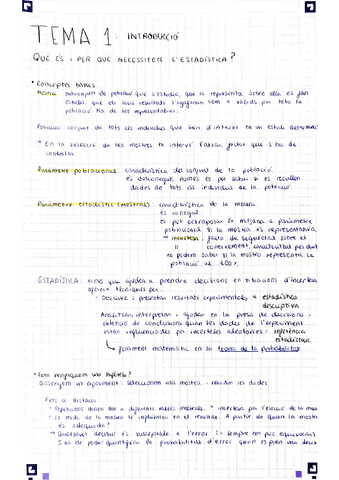 TEMA 1: INTRODUCCIÓ
QUÈ ÉS I PER QUÈ NECESSITEM L'ESTADÍSTICA?
• Conceptes bàsics
Mostra: subconjunt de població que s'estudia, que la representa. Sobre ella es fan
estudis, que els seus resultats s'agafaran com a vàlids per tota la
població. Ha de ser representativa.
Població: conjunt de tots els individus que són d'interès en un estudi determinat
* En la selecció de les mostres hi intervé l'atzar, factor que s'ha de
controlar.
Paràmetre poblacional: característica del conjunt de la població.
És desconegut, només es pot saber si es recullen
dades de tots els individus de la població.
Paràmetre estadístic (mostral): característica de la mostra
és conegut
es pot extrapolar la mitjana a paràmetre
poblacional si la mostra és representativa
→ incertesa: falta de seguretat sobre el
coneixement, característica
no podem saber si la mostra representa la
població al 100%.
ESTADÍSTICA: eines que ajuden a prendre decisions en situacions d'incertesa
ofereix tècniques per:
- Descriure i presentar resultats experimentals = estadística
descriptiva
- Analitzar, interpretar i ajudar en la presa de decisions i
obtenció de conclusions quan les dades de l'experiment
estan influenciades per incerteses aleatòries = inferència
estadística
fonament matemàtic en la teoria de la probabilitat
• Com verifiquem una hipòtesi?
Dissenyem un experiment: seleccionem una mostra i recollim les dades.
Fets a destacar
- Repeticions donen lloc a diferents valors mostrals → incertesa per l'elecció de la mostra
- La mida de la mostra influència en el resultat. A partir de quan la mostra
és adequada?
- Qualsevol decisió és susceptible a l'error. Ens
S'ha de poder quantificar la probabilitat d'error quan es pren una decisió